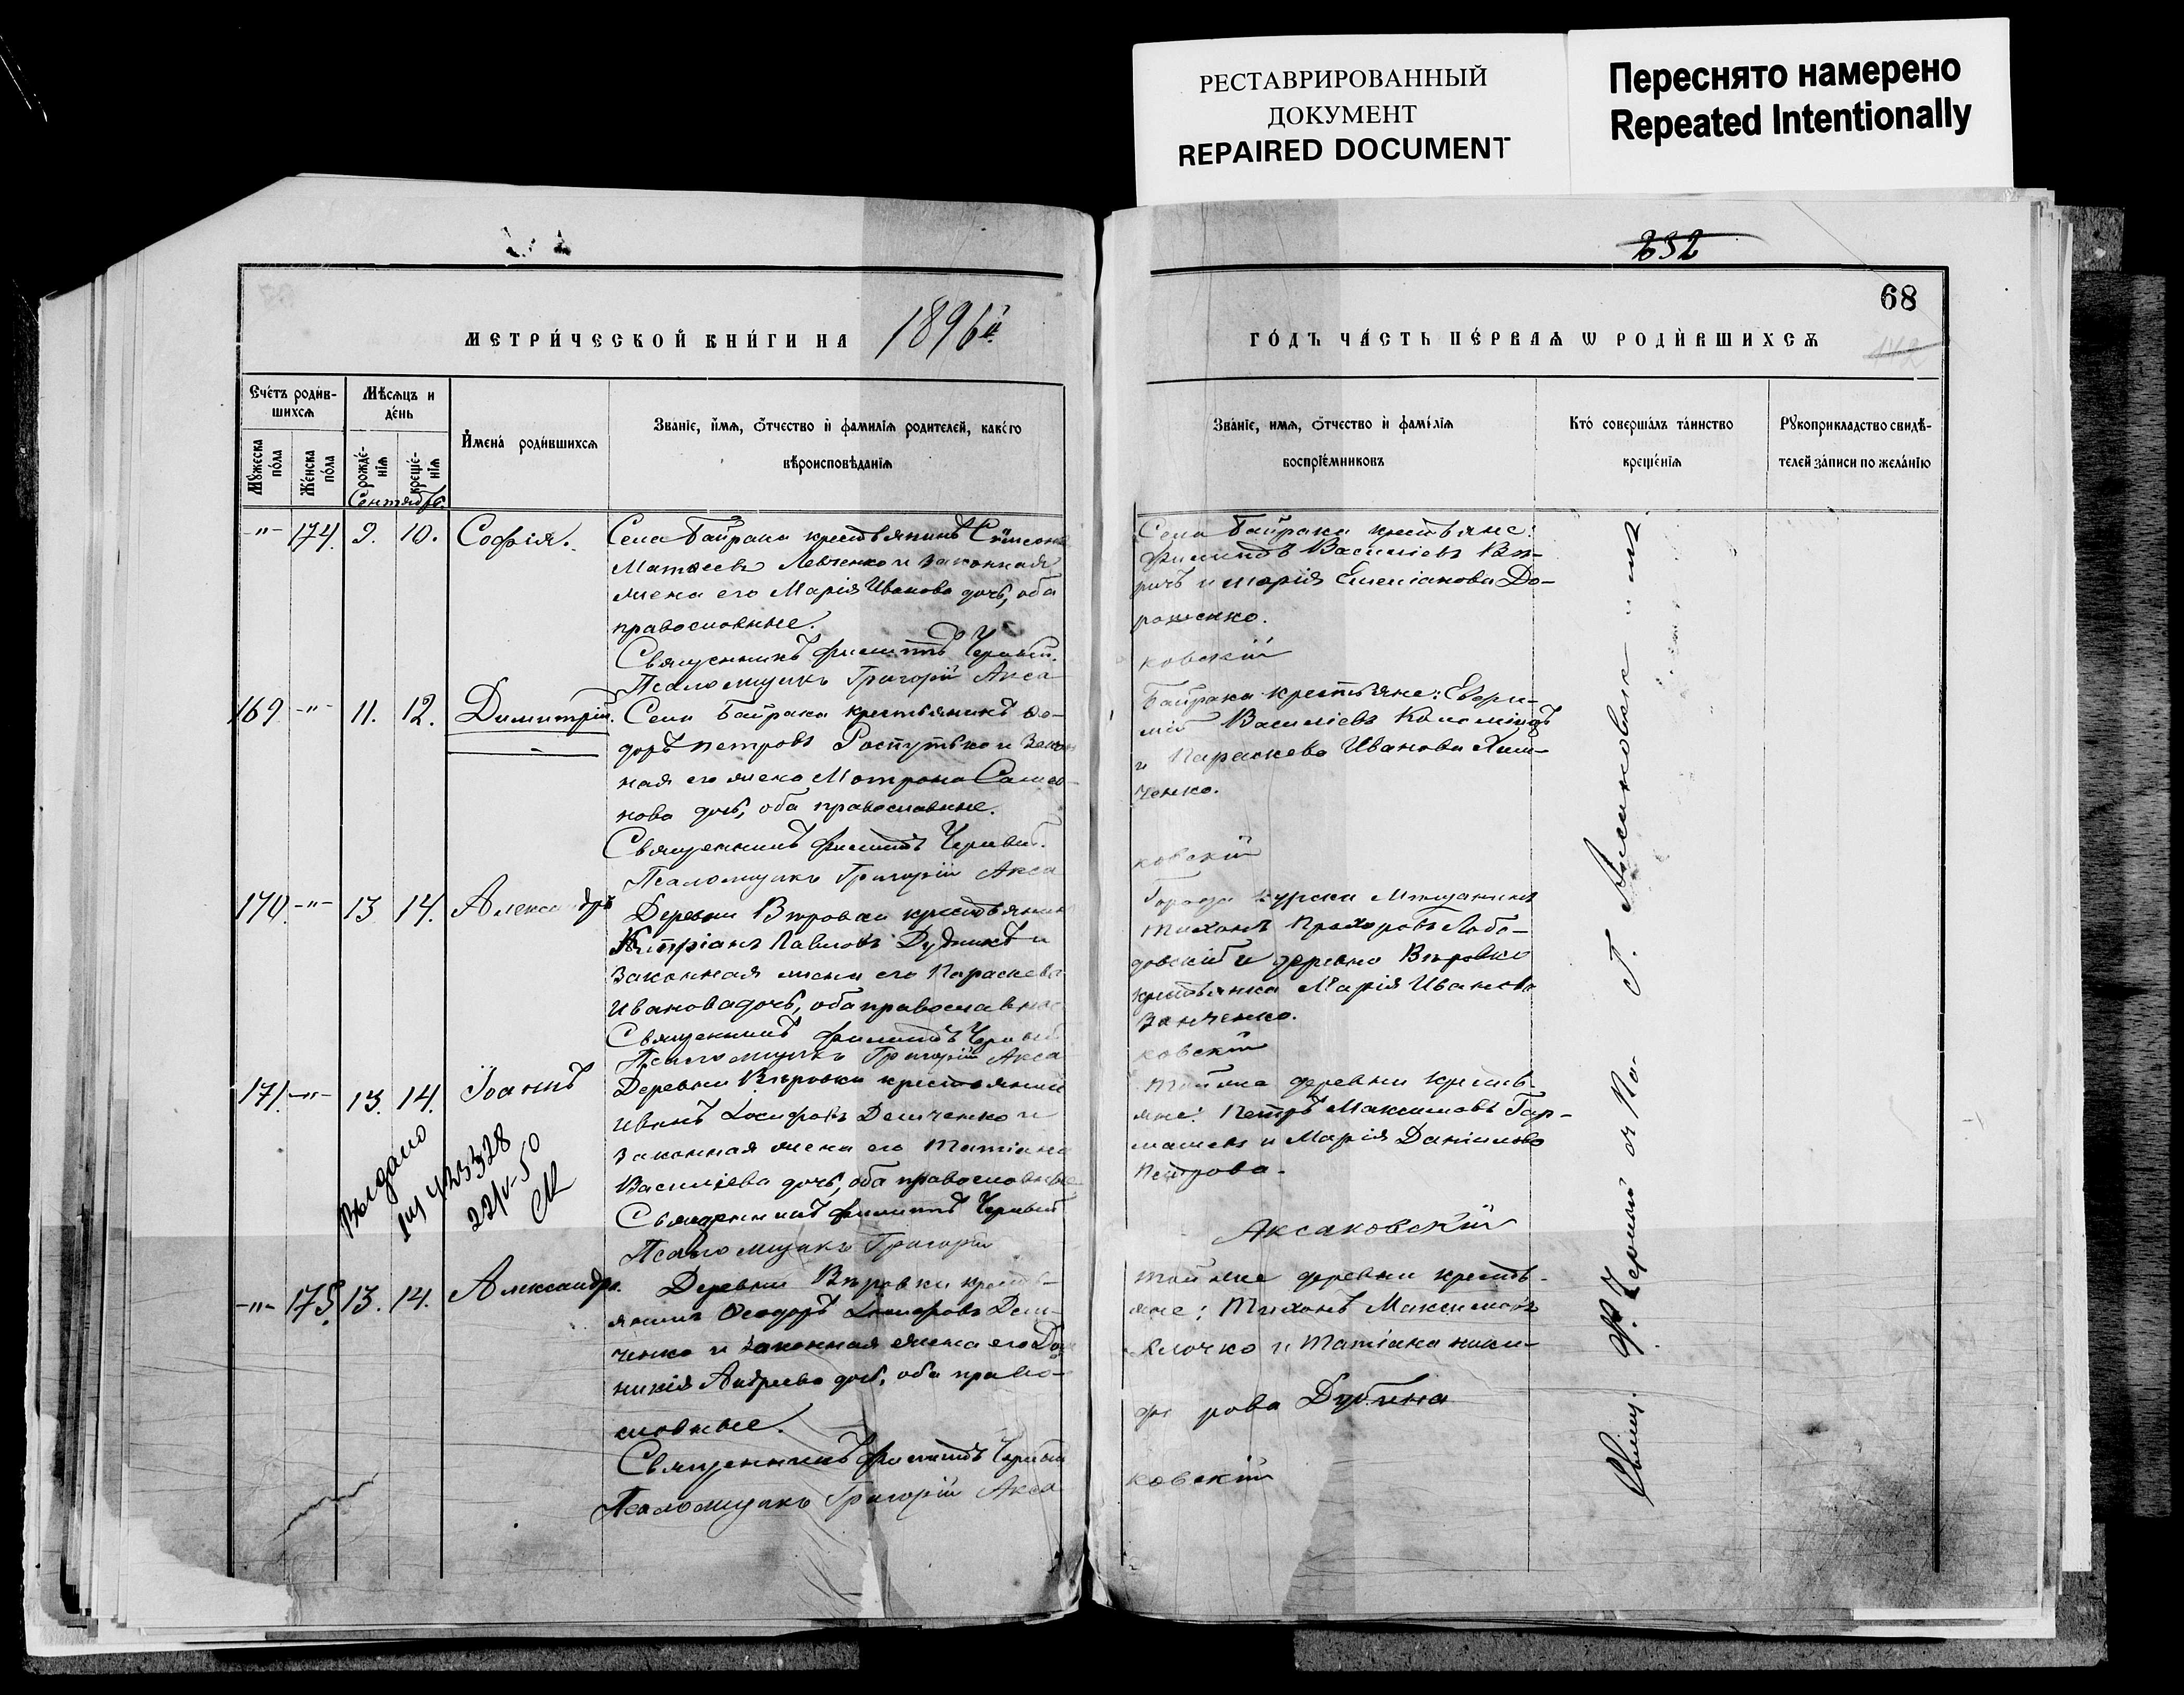 РЕСТАВРИРОВАННЫЙ
ДОКУМЕНТ
REPAIRED DOCUMENT
Переснято намерено
Repeated Intentionally
232
68
142
МЕТРИ́ЧЕСКОЙ КНИ́ГИ НА 1896й
ГО́ДЪ ЧА́СТЬ ПЕ́РВАѦ Ѡ РОДИ́ВШИХСѦ
Счéтъ роди́в-
шихсѧ
Мꙋ́жеска
по́ла
Же́нска
по́ла
Мѣ́сѧцъ и
де́нь
рожде́-
нїѧ
креще́-
нїѧ
Сентябрь.
Имена́ роди́вшихсѧ
Зва́нїе, и́мѧ, о́тчество и фами́лїѧ родителей, како́го
вѣроисповѣ́данїѧ
Зва́нїе, имѧ, о́тчество и фами́лїѧ
воспрїе́мниковъ
Кто́ соверша́лъ та́инство
креще́нїѧ
Рꙋкоприкладство свидѣ́-
телей за́писи по жела́нїю
-"- 174. 9. 10. Софія.
Села Байрака крестьянинъ Сѵмеонъ
Матѳеевъ Левченко и законная
жена его Марія Иванова дочь, оба
православные.
Священникъ Филиппъ Червый.
Псаломщикъ Григорій Акса
Села Байрака крестьяне:
Филиппъ Василіевъ
и Марія Емеліанова До-
рошенко.
ковскій
169 -"- 11. 12. Димитрій.
Села Байрака крестьянинъ Ѳео-
доръ Петровъ Распутько и закон
ная его жена Матрона Самсо-
нова дочь, оба православные.
Священникъ Филиппъ Червый.
Псаломщикъ Григорій Акса
Байрака крестьяне: Евфи-
мій Василіевъ Коломіецъ
и Параскева Иванова
ченко.
ковскій
170. -"- 13 14. Александръ
Деревни Вировки крестьянин
Кипріанъ Павловъ Дудникъ и
законная жена его Параскева
Иванова дочь, оба православные
Священникъ Филиппъ Червый
Псаломщикъ Григорій Акса
Города Курска Мѣщанинъ
Тихонъ Прохоровъ Лобо-
довскій и деревни Вировки
крестьянка Марія Иванова
Занченко.
ковскій
171. -"- 13. 14. Іоаннъ
Деревни Вировки крестьянин
Иванъ Іосифовъ Демченко и
законная жена его Татіана
Василіева дочь, оба православные
Священникъ Филиппъ Червый
Псаломщикъ Григорій
Той же деревни кресть-
яне: Петръ Максимовъ Гар-
машъ и Марія Даніилова
Петрова.
Аксаковскій
Выдано
423328
22/V-50
-"- 175. 13. 14. Александра.
Деревни Вировки кресть-
янинъ Ѳеодоръ Іосифовъ Дем-
ченко и законная жена его До
никія Андреева дочь, оба право-
славные.
Священникъ Филиппъ Червый
Псаломщикъ Григорій Акса
Той же деревни кресть-
яне: Тихонъ Максимовъ
Клочко и Татіана Ники-
фо рова Дубина
ковскій
Свящ. Ф. Червый